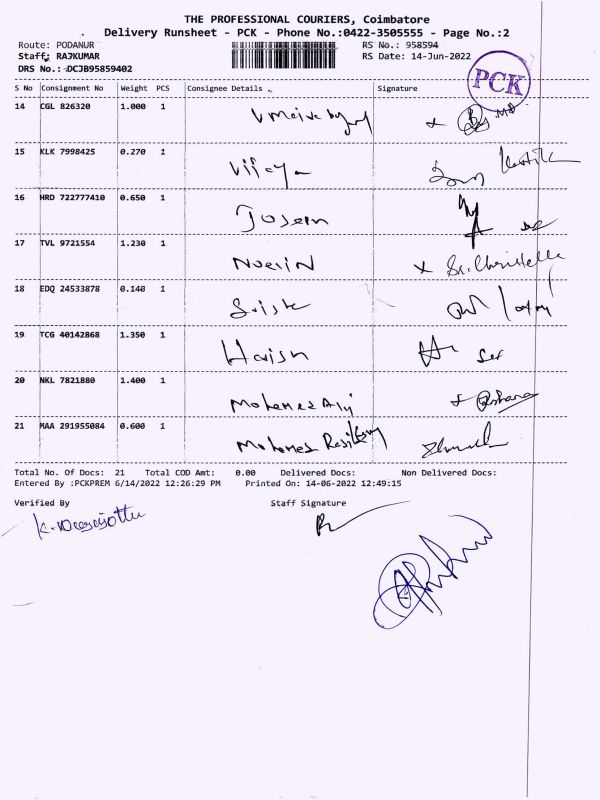 THE PROFESSIONAL COURIERS, Coimbatore
Delivery Runsheet - PCK - Phone No.:0422-3505555 - Page No.:2
Route: PODANUR RS No.: 958594
Staff: RAJKUMAR RS Date: 14-Jun-2022
DRS No.: DCJB95859402
PCK
S No Consignment No Weight PCS Consignee Details Signature
14 CGL 826320 1.000 1
15 KLK 7998425 0.270 1 Vijaya
16 HRD 722777410 0.650 1 Josem
17 TVL 9721554 1.230 1 Noelin
18 EDQ 24533878 0.140 1
19 TCG 40142868 1.350 1 Harish
20 NKL 7821880 1.400 1 Mohamed Ali
21 MAA 291955084 0.600 1 Mohamed
Total No. Of Docs: 21 Total COD Amt: 0.00 Delivered Docs: Non Delivered Docs:
Entered By :PCKPREM 6/14/2022 12:26:29 PM Printed On: 14-06-2022 12:49:15
Verified By Staff Signature